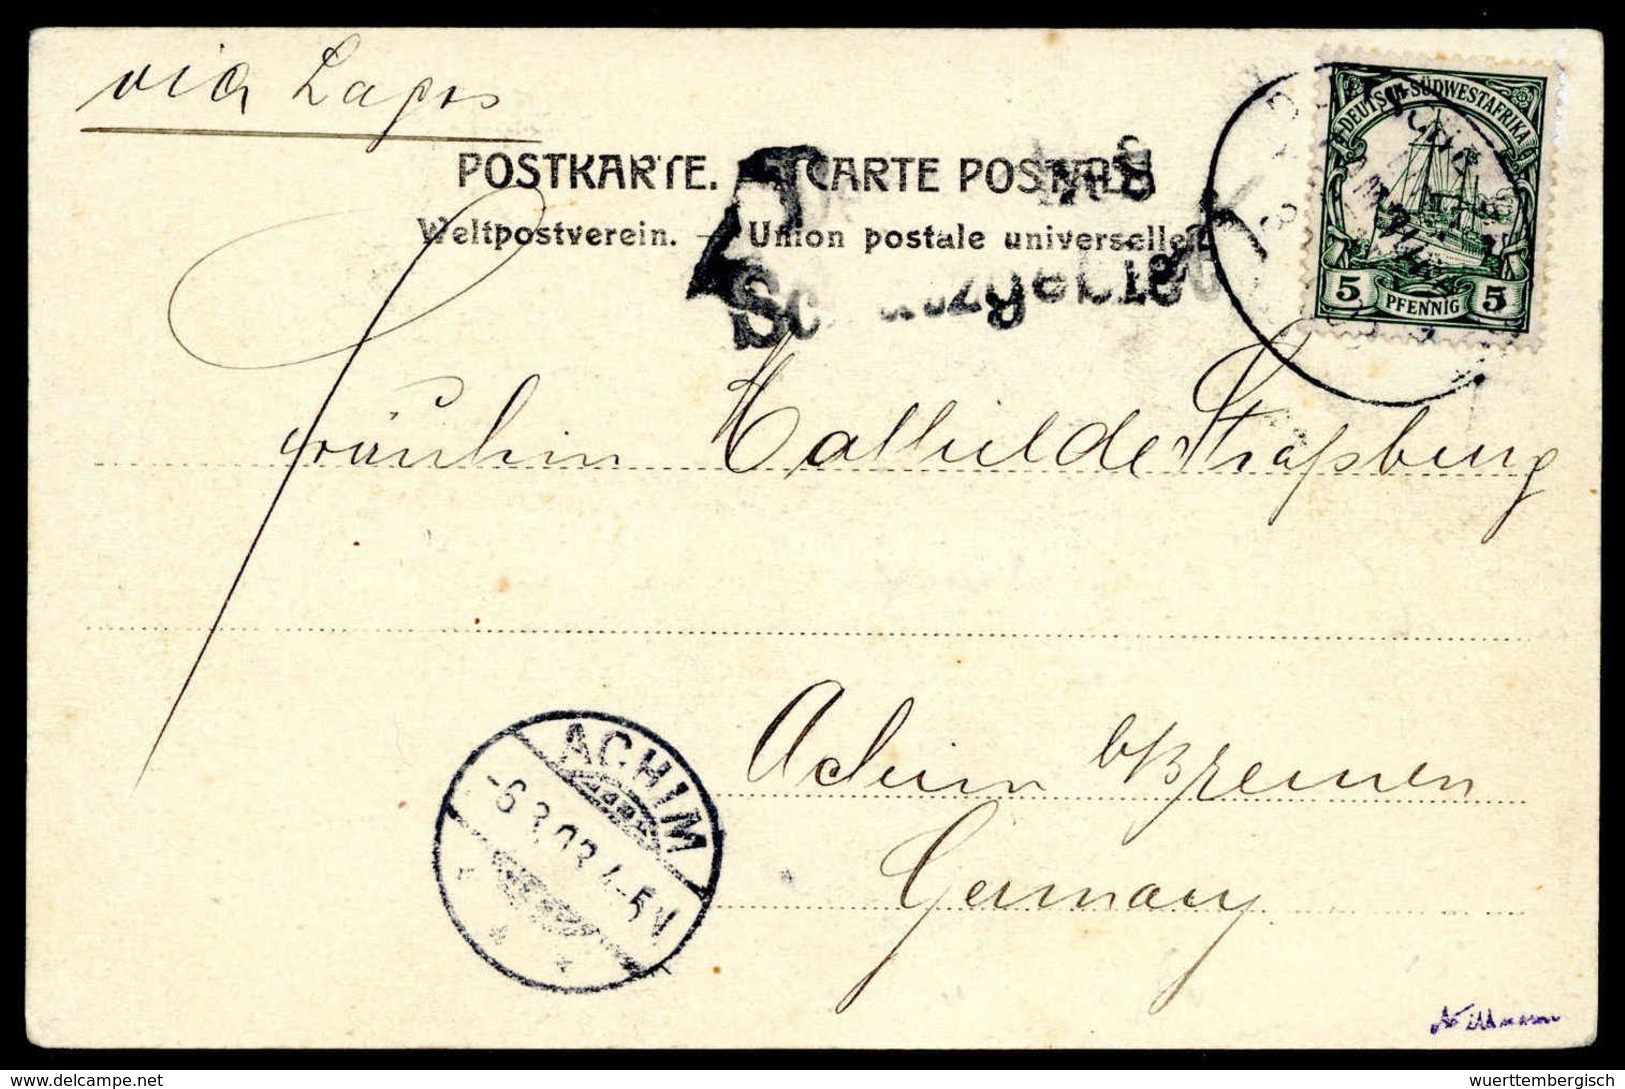 via Lagos
POSTKARTE. CARTE POSTALE
Weltpostverein. — Union postale universelle.
Aus
Schutzgebiet
DEUTSCH-SÜDWESTAFRIKA
5 PFENNIG 5
Fräulein Mathilde Straßburg
Achim b/Bremen
Germany
ACHIM
-6.3.03.4-5N
delcampe.net
wuerttembergisch